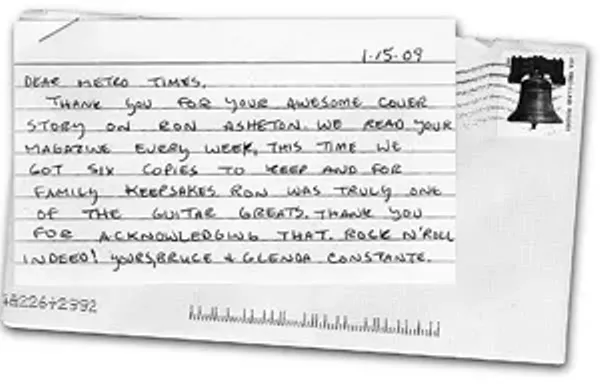 1-15-09
DEAR METRO TIMES,
THANK YOU FOR YOUR AWESOME COVER
STORY ON RON ASHETON. WE READ YOUR
MAGAZINE EVERY WEEK, THIS TIME WE
GOT SIX COPIES TO KEEP AND FOR
FAMILY KEEPSAKES. RON WAS TRULY ONE
OF THE GUITAR GREATS. THANK YOU
FOR ACKNOWLEDGING THAT. ROCK N'ROLL
INDEED! YOURS, BRUCE & GLENDA CONSTANTE.